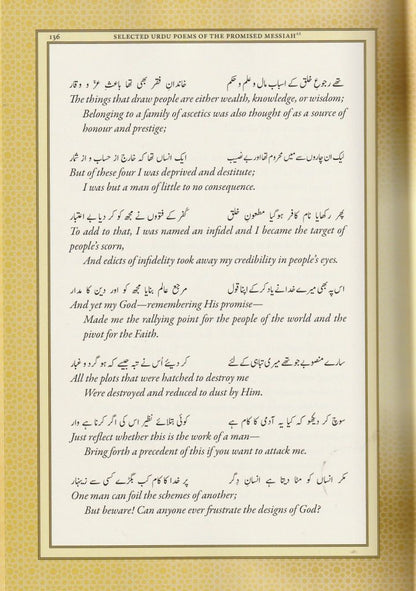 156 SELECTED URDU POEMS OF THE PROMISED MESSIAH as
تھے رجوعِ خلق کے اسباب مال و علم و حکم خاندانِ فقر بھی تھا باعثِ عزّ و وقار
The things that draw people are either wealth, knowledge, or wisdom;
Belonging to a family of ascetics was also thought of as a source of
honour and prestige;
لیک اِن چاروں سے میں محروم تھا اور بے نصیب ایک انساں تھا کہ خارج از حساب و از شمار
But of these four I was deprived and destitute;
I was but a man of little to no consequence.
پھر رکھایا نام کافر ہو گیا مطعونِ خلق کُفر کے فتووں نے مجھ کو کر دیا بے اعتبار
To add to that, I was named an infidel and I became the target of
people's scorn,
And edicts of infidelity took away my credibility in people's eyes.
اس پہ بھی میرے خدا نے یاد کر کے اپنا قول مرجعِ عالم بنایا مجھ کو اور دیں کا مدار
And yet my God—remembering His promise—
Made me the rallying point for the people of the world and the
pivot for the Faith.
سارے منصوبے جو تھے میری تباہی کے لئے کر دیئے اُس نے تبہ جیسے کہ ہو گرد و غبار
All the plots that were hatched to destroy me
Were destroyed and reduced to dust by Him.
سوچ کر دیکھو کہ کیا یہ آدمی کا کام ہے کوئی بتلائے نظیر اس کی اگر کرنا ہے وار
Just reflect whether this is the work of a man—
Bring forth a precedent of this if you want to attack me.
مکرِ انساں کو مٹا دیتا ہے انسانِ دگر پر خدا کا کام کب بگڑے کسی سے زینہار
One man can foil the schemes of another;
But beware! Can anyone ever frustrate the designs of God?